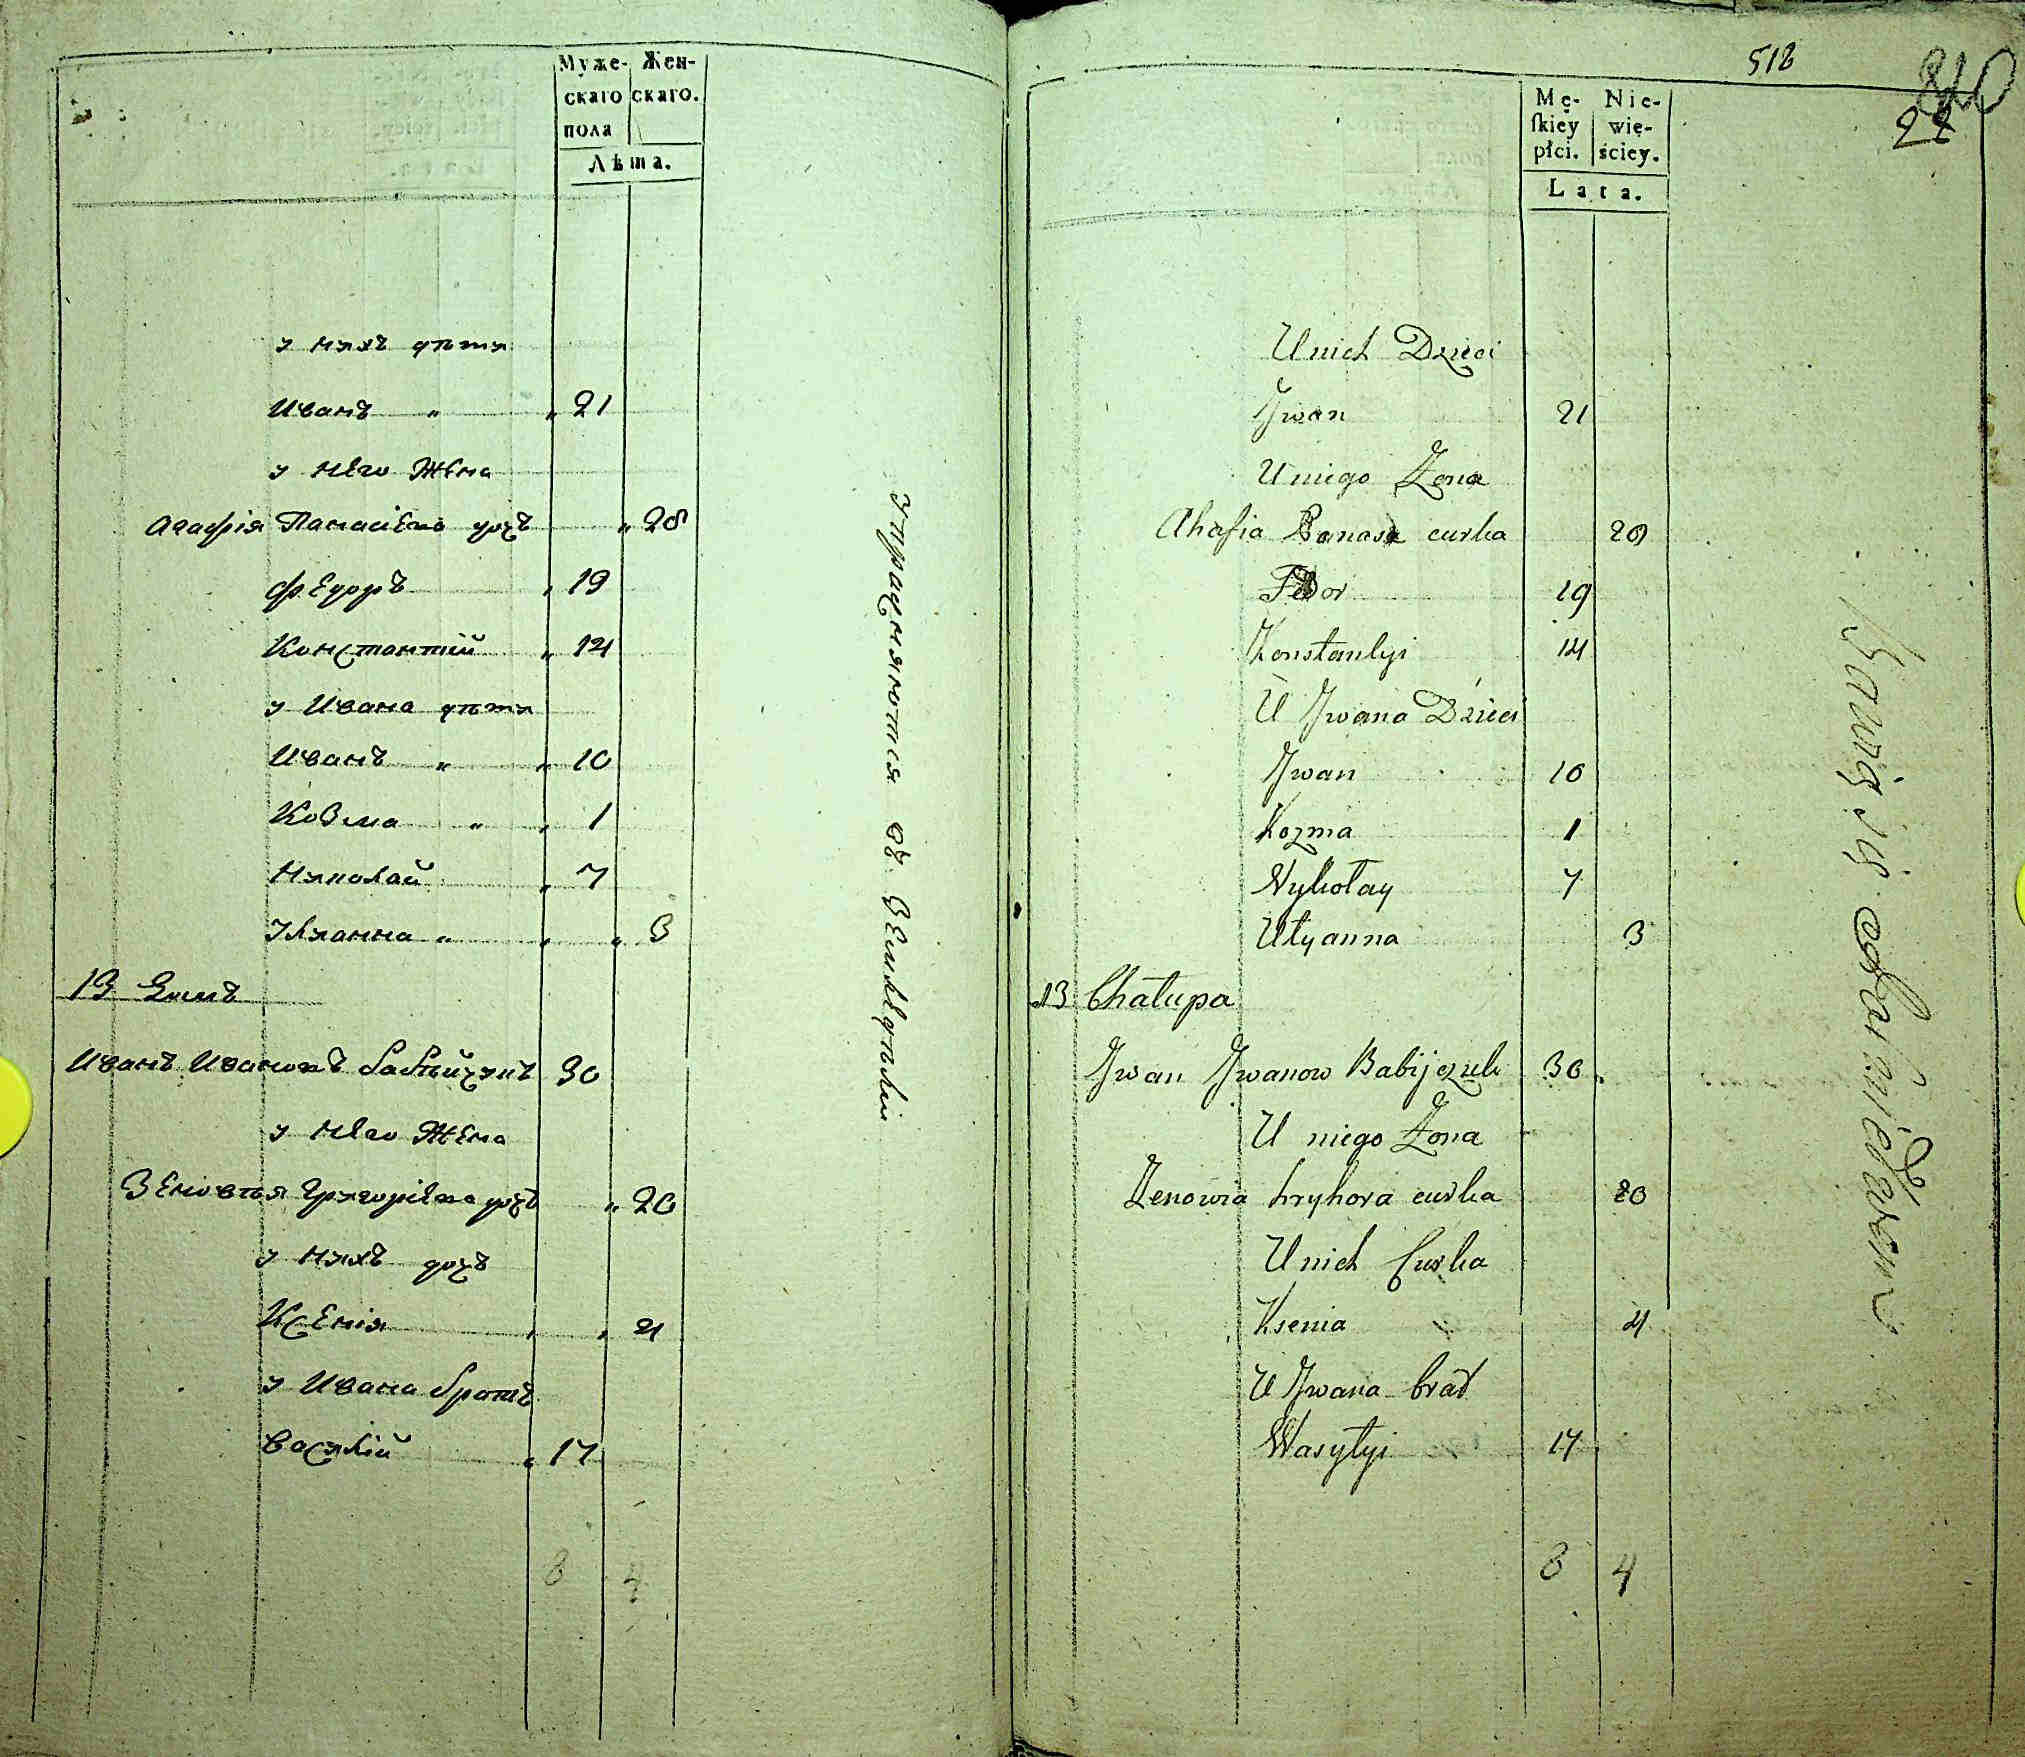 Муже- Жен-
скаго скаго.
пола
Лѣта.
у нихъ дѣти
Иванъ " " 21
у него жена
Агафія Панасіева дочь " 28
Федоръ " 19
Константій " 14
у Ивана дѣти
Иванъ " " 10
Козма " " 1
Николай " 7
Улианна " " " 3
13 Домъ
Иванъ Ивановъ бабѣйчукъ 30
у него жена
Зеновѣя Григоріева дочь " 20
у нихъ дочь
Ксенія " " 4
у Ивана братъ
Василій " 17
8 4
Упражняются въ Земледѣліи
518
820
22
Mę- Nie-
ſkiey wie-
płci. ściey.
Lata.
U nich Dzieci
Jwan 21
U niego Żona
Ahafia Panasa curka 28
Fedor 19
Konstantyi 14
U Jwana Dzieci
Jwan 10
Kozma 1
Nykołay 7
Ulyanna 3
13 Chałupa
Jwan Jwanow Babijczuk 30
U niego Żona
Zenowia hryhora curka 20
U nich Curka
Ksenia 4
U Jwana brat
Wasylyi 17
8 4
Bawią się